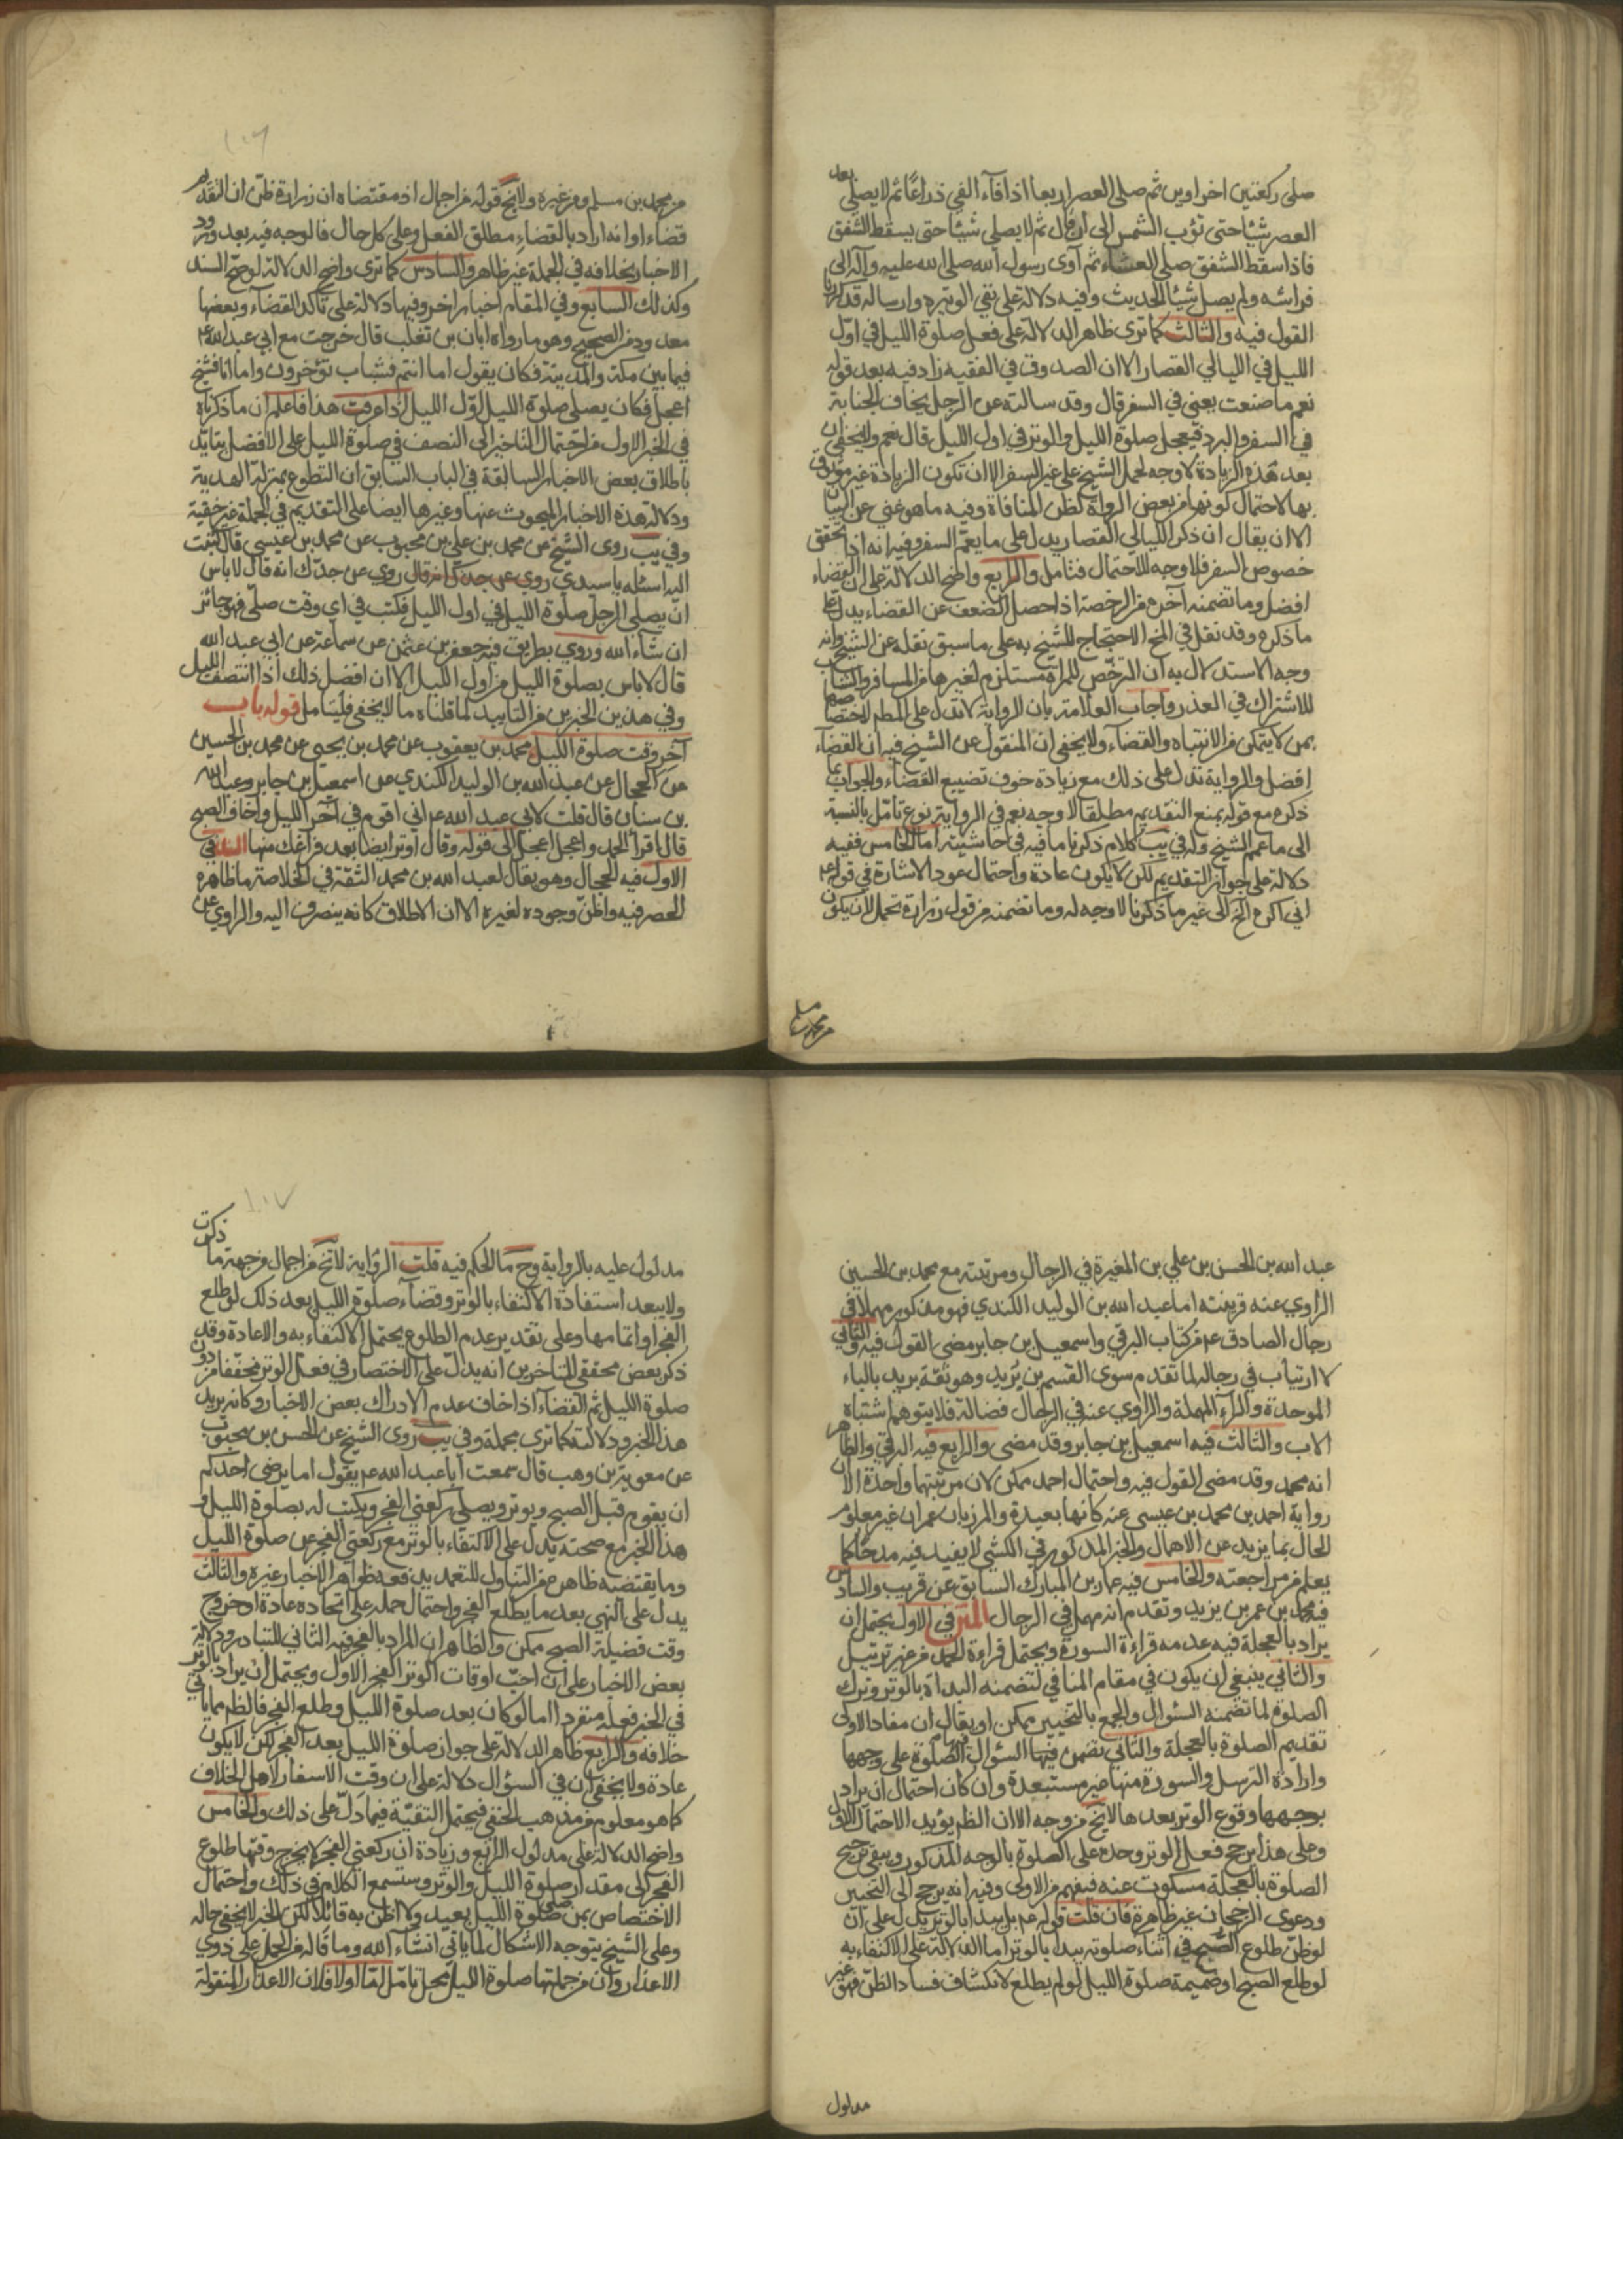 صلى ركعتين اخراوين ثم صلى العصر اربعا اذا فآء الفئ ذراعًا ثم لا يصلي بعد
العصر شيئا حتى تؤب الشمس الى ان قال ثم لا يصلي شيئا حتى يسقط الشفق
فاذا سقط الشفق صلى العشاء ثم آوى رسول الله صلى الله عليه وآله الى
فراشه ولم يصل شيئا الحديث وفيه دلالة على نفي الوتيرة وارساله قد كررنا
القول فيه والثالث كما ترى ظاهر الدلالة على فعل صلوة الليل في اوّل
الليل في الليالي القصار الا ان الصدوق في الفقيه زاد فيه بعد قوله
نعم ما صنعت يعني في السفر قال وقد سالته عن الرجل يخاف الجنابة
في السفر والبرد فيعجل صلوة الليل والوتر في اول الليل قال نعم ولا يخفى ان
بعد هذه الزيادة لا وجه لحمل الشيخ على غير السفر الا ان تكون الزيادة غير موثوق
بها لاحتمال كونها من بعض الرواة لظن المنافاة وفيه ما هو غني عن البيان
الا ان يقال ان ذكر الليالي القصار يدل على ما يعم السفر وفيه انه اذا تحقق
خصوص السفر فلا وجه للاحتمال فتامل والرابع واضح الدلالة على ان القضاء
افضل وما تضمنه آخره من الرخصة اذا حصل الضعف عن القضاء يدل على
ما ذكره وقد نقل في المخ الاحتجاج للشيخ به على ما سبق نقله عن الشيخ وانه
وجه الاستدلال به ان الترخّص للمراة مستلزم لغيرها من المسافر والشاب
للاشتراك في العذر واجاب العلامة بان الرواية لا تدل على المطم لاختصاصها
بمن لا يتمكن من الانتباه والقضآء ولا يخفى ان المنقول عن الشيخ فيه ان القضاء
افضل والرواية تدل على ذلك مع زيادة خوف تضييع القضاء والجواب عما
ذكره مع قوله بمنع التقديم مطلقا لا وجه نعم في الرواية نوع تامل بالنسبة
الى ما عمم الشيخ وله في يب كلام ذكرنا ما فيه في حاشيته اما الخامس ففيه
دلالة على جواز التقديم لكن لا يكون عادة واحتمال عود الاشارة في قوله ع
اني اكره الخ الى غير ما ذكرنا لا وجه له وما تضمنه من قول زرارة تحمل لان يكون
من محمد بن مسلم
١٠٦
من محمد بن مسلم ومن غيره ولا يخ قوله من اجمال اذ مقتضاه ان زرارة ظن ان التقديم
قضاء او انه اراد بالقضاء مطلق الفعل وعلى كل حال فالوجه فيه بعد ورود
الاخبار بخلافه في الجملة غير ظاهر والسادس كما ترى واضح الدلالة لو صح السند
وكذلك السابع وفي المقام اخبار اخر وفيها دلالة على تاكد القضآء وبعضها
معدود من الصحيح وهو ما رواه ابان بن تغلب قال خرجت مع ابي عبد الله ع
فيما بين مكة والمدينة فكان يقول اما انتم فشباب تؤخرون واما انا فشيخ
اعجل فكان يصلي صلوة الليل اوّل الليل اذا عرفت هذا فاعلم ان ما ذكرناه
في الخبر الاول من احتمال التاخير الى النصف في صلوة الليل على الافضل يتايد
باطلاق بعض الاخبار السابقة في الباب السابق ان التطوع بمنزلة الهدية
ودلالة هذه الاخبار المبحوث عنها وغيرها ايضا على التقديم في الجملة غير خفية
وفي يب روى الشيخ عن محمد بن علي بن محبوب عن محمد بن عيسى قال كتبت
اليه اسئله يا سيدي روي عن جدك انه قال روي عن جدّك انه قال لا باس
ان يصلي الرجل صلوة الليل في اول الليل فكتب في اي وقت صلّى فهو جائز
ان شاء الله وروي بطريق فيه جعفر بن عثمن عن سماعة عن ابي عبد الله
قال لا باس بصلوة الليل من اول الليل الا ان افضل ذلك اذا انتصف الليل
وفي هذين الخبرين من التاييد لما قلناه ما لا يخفى فليتامل قوله باب
آخر وقت صلوة الليل محمد بن يعقوب عن محمد بن يحيى عن محمد بن الحسين
عن الحجال عن عبد الله بن الوليد الكندي عن اسمعيل بن جابر وعبد الله
بن سنان قال قلت لابي عبد الله ع اني اقوم في آخر الليل واخاف الصبح
قال اقرا الحمد واعجل اعجل الى قوله وقال اوتر ايضا بعد فراغك منها السند في
الاول فيه الحجال وهو يقال لعبد الله بن محمد الثقة في الخلاصة ما ظاهره
الحصر فيه واظن وجوده لغيره الا ان الاطلاق كانه ينصرف اليه والراوي عن
عبد الله بن الحسن بن علي بن المغيرة في الرجال ومرتبته مع محمد بن الحسين
الراوي عنه قرينته اما عبد الله بن الوليد الكندي فهو مذكور مهملا في
رجال الصادق ع من كتاب البرقي واسمعيل بن جابر مضى القول فيه والثاني
لا ارتياب في رجاله لما تقدم سوى القسم بن بُرَيد وهو ثقة بريد بالباء
الموحدة والراء المهملة والراوي عنه في الرجال فضالة فلا يتوهم اشتباه
الاب والثالث فيه اسمعيل بن جابر وقد مضى والرابع فيه البرقي والظاهر
انه محمد وقد مضى القول فيه واحتمال احمد ممكن لان مرتبتهما واحدة الا ان
رواية احمد بن محمد بن عيسى عنه كانها بعيدة والمرزبان بن عمران غير معلوم
الحال بما يزيد عن الاهمال والخبر المذكور في الكشي لا يفيد فيه مدحًا كما
يعلم من مراجعته والخامس فيه عمار بن المبارك السابق عن قريب والسادس
فيه محمد بن عمر بن يزيد وتقدم انه مهمل في الرجال المتن في الاول يحتمل ان
يراد بالعجلة فيه عدمه قراءة السورة ويحتمل قراءة الحمد من غير ترتيل
والثاني ينبغي ان يكون في مقام المنافي لتضمنه البدأة بالوتر وترك
الصلوة لما تضمنه السؤال والجمع بالتخيير ممكن او يقال ان مفاد الاولى
تقديم الصلوة بالعجلة والثاني تضمن فيها السؤال الصلوة على وجهها
وارادة الترسل والسورة منها غير مستبعدة وان كان احتمال ان يراد
بوجهها وقوع الوتر بعدها لا يخ من وجه الا ان الظم يؤيد الاحتمال الاول
وعلى هذا يرجح فعل الوتر وحده على الصلوة بالوجه المذكور ويبقى ترجيح
الصلوة بالعجلة مسكوت عنه فيفهم من الاولى وفيه انه يرجح الى التخيير
ودعوى الرجحان غير ظاهرة فان قلت قوله ع بل يبدا بالوتر يدل على ان
لو ظن طلوع الصبح في اثناء صلوته يبدا بالوتر اما الدلالة على الاكتفاء به
لو طلع الصبح او ضميمة صلوة الليل لو لم يطلع لانكشاف فساد الظن فهو غير
مدلول
١٠٧
مدلول عليه بالرواية وح ما الحكم فيه قلت الرواية لا تخ من اجمال من جهة ما ذكرت
ولا يبعد استفادة الاكتفاء بالوتر وقضآء صلوة الليل بعد ذلك لو طلع
الفجر او اتمامها وعلى تقدير عدم الطلوع يحتمل الاكتفاء به والاعادة وقد
ذكر بعض محققي المتاخرين انه يدل على الاختصار في فعل الوتر مخففا من دون
صلوة الليل ثم القضآء اذا خاف عدم الادراك بعض الاخبار وكانه يريد
هذا الخبر ودلالته كما ترى مجملة وفي يب روى الشيخ عن الحسن بن محبوب
عن معوية بن وهب قال سمعت ابا عبد الله ع يقول اما يرضى احدكم
ان يقوم قبل الصبح ويوتر ويصلي ركعتي الفجر ويكتب له بصلوة الليل و
هذا الخبر مع صحته يدل على الاكتفاء بالوتر مع ركعتي الفجر عن صلوة الليل
وما يقتضيه ظاهره من التناول للتعمد يدفعه ظواهر الاخبار غيره والثالث
يدل على النهي بعد ما يطلع الفجر واحتمال حمله على اتخاده عادة او خروج
وقت فضيلة الصبح ممكن والظاهر ان المراد بالفجر فيه الثاني للتبادر ودلالة
بعض الاخبار على ان احبّ اوقات الوتر الفجر الاول ويحتمل ان يراد بالوتر
في الخبر فعله منفردا اما لو كان بعد صلوة الليل وطلع الفجر فالظم مما ياتي
خلافه والرابع ظاهر الدلالة على جواز صلوة الليل بعد الفجر لكن لا يكون
عادة ولا يخفى ان في السؤال دلالة على ان وقت الاسفار لاهل الخلاف
كما هو معلوم من مذهب الحنفي فيحتمل التقيّة فيما دلّ على ذلك والخامس
واضح الدلالة على مدلول الرابع وزيادة ان ركعتي الفجر لا يخرج وقتها طلوع
الفجر الى مقدار صلوة الليل والوتر وستسمع الكلام في ذلك واحتمال
الاختصاص بمن صلى صلوة الليل بعيد ولا اظن به قائلا لكن الخبر لا يخفى حاله
وعلى الشيخ يتوجه الاشكال لما ياتي انشاء الله وما قاله من الحمل على ذوي
الاعذار وان من جملتها صلوة الليل محل تامّل لما اولا فلان الاعذار المنقولة